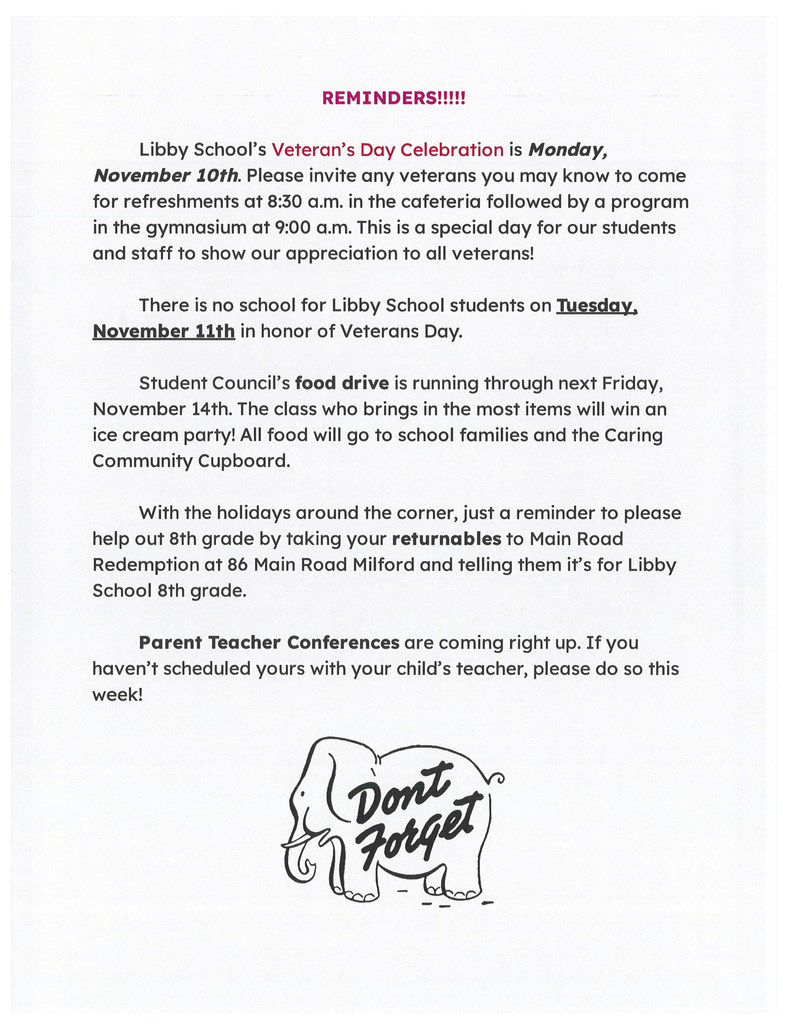 REMINDERS!!!!!
Libby School's Veteran's Day Celebration is Monday,
November 10th. Please invite any veterans you may know to come
for refreshments at 8:30 a.m. in the cafeteria followed by a program
in the gymnasium at 9:00 a.m. This is a special day for our students
and staff to show our appreciation to all veterans!
There is no school for Libby School students on Tuesday,
November 11th in honor of Veterans Day.
Student Council's food drive is running through next Friday,
November 14th. The class who brings in the most items will win an
ice cream party! All food will go to school families and the Caring
Community Cupboard.
With the holidays around the corner, just a reminder to please
help out 8th grade by taking your returnables to Main Road
Redemption at 86 Main Road Milford and telling them it's for Libby
School 8th grade.
Parent Teacher Conferences are coming right up. If you
haven't scheduled yours with your child's teacher, please do so this
week!
Dont
Forget